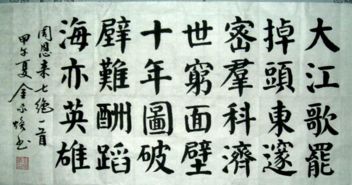 大江歌罷
掉頭東邃
密羣科濟
世窮面壁
十年圖破
壁難酬蹈
海亦英雄
周恩来七绝一首
甲午夏金书